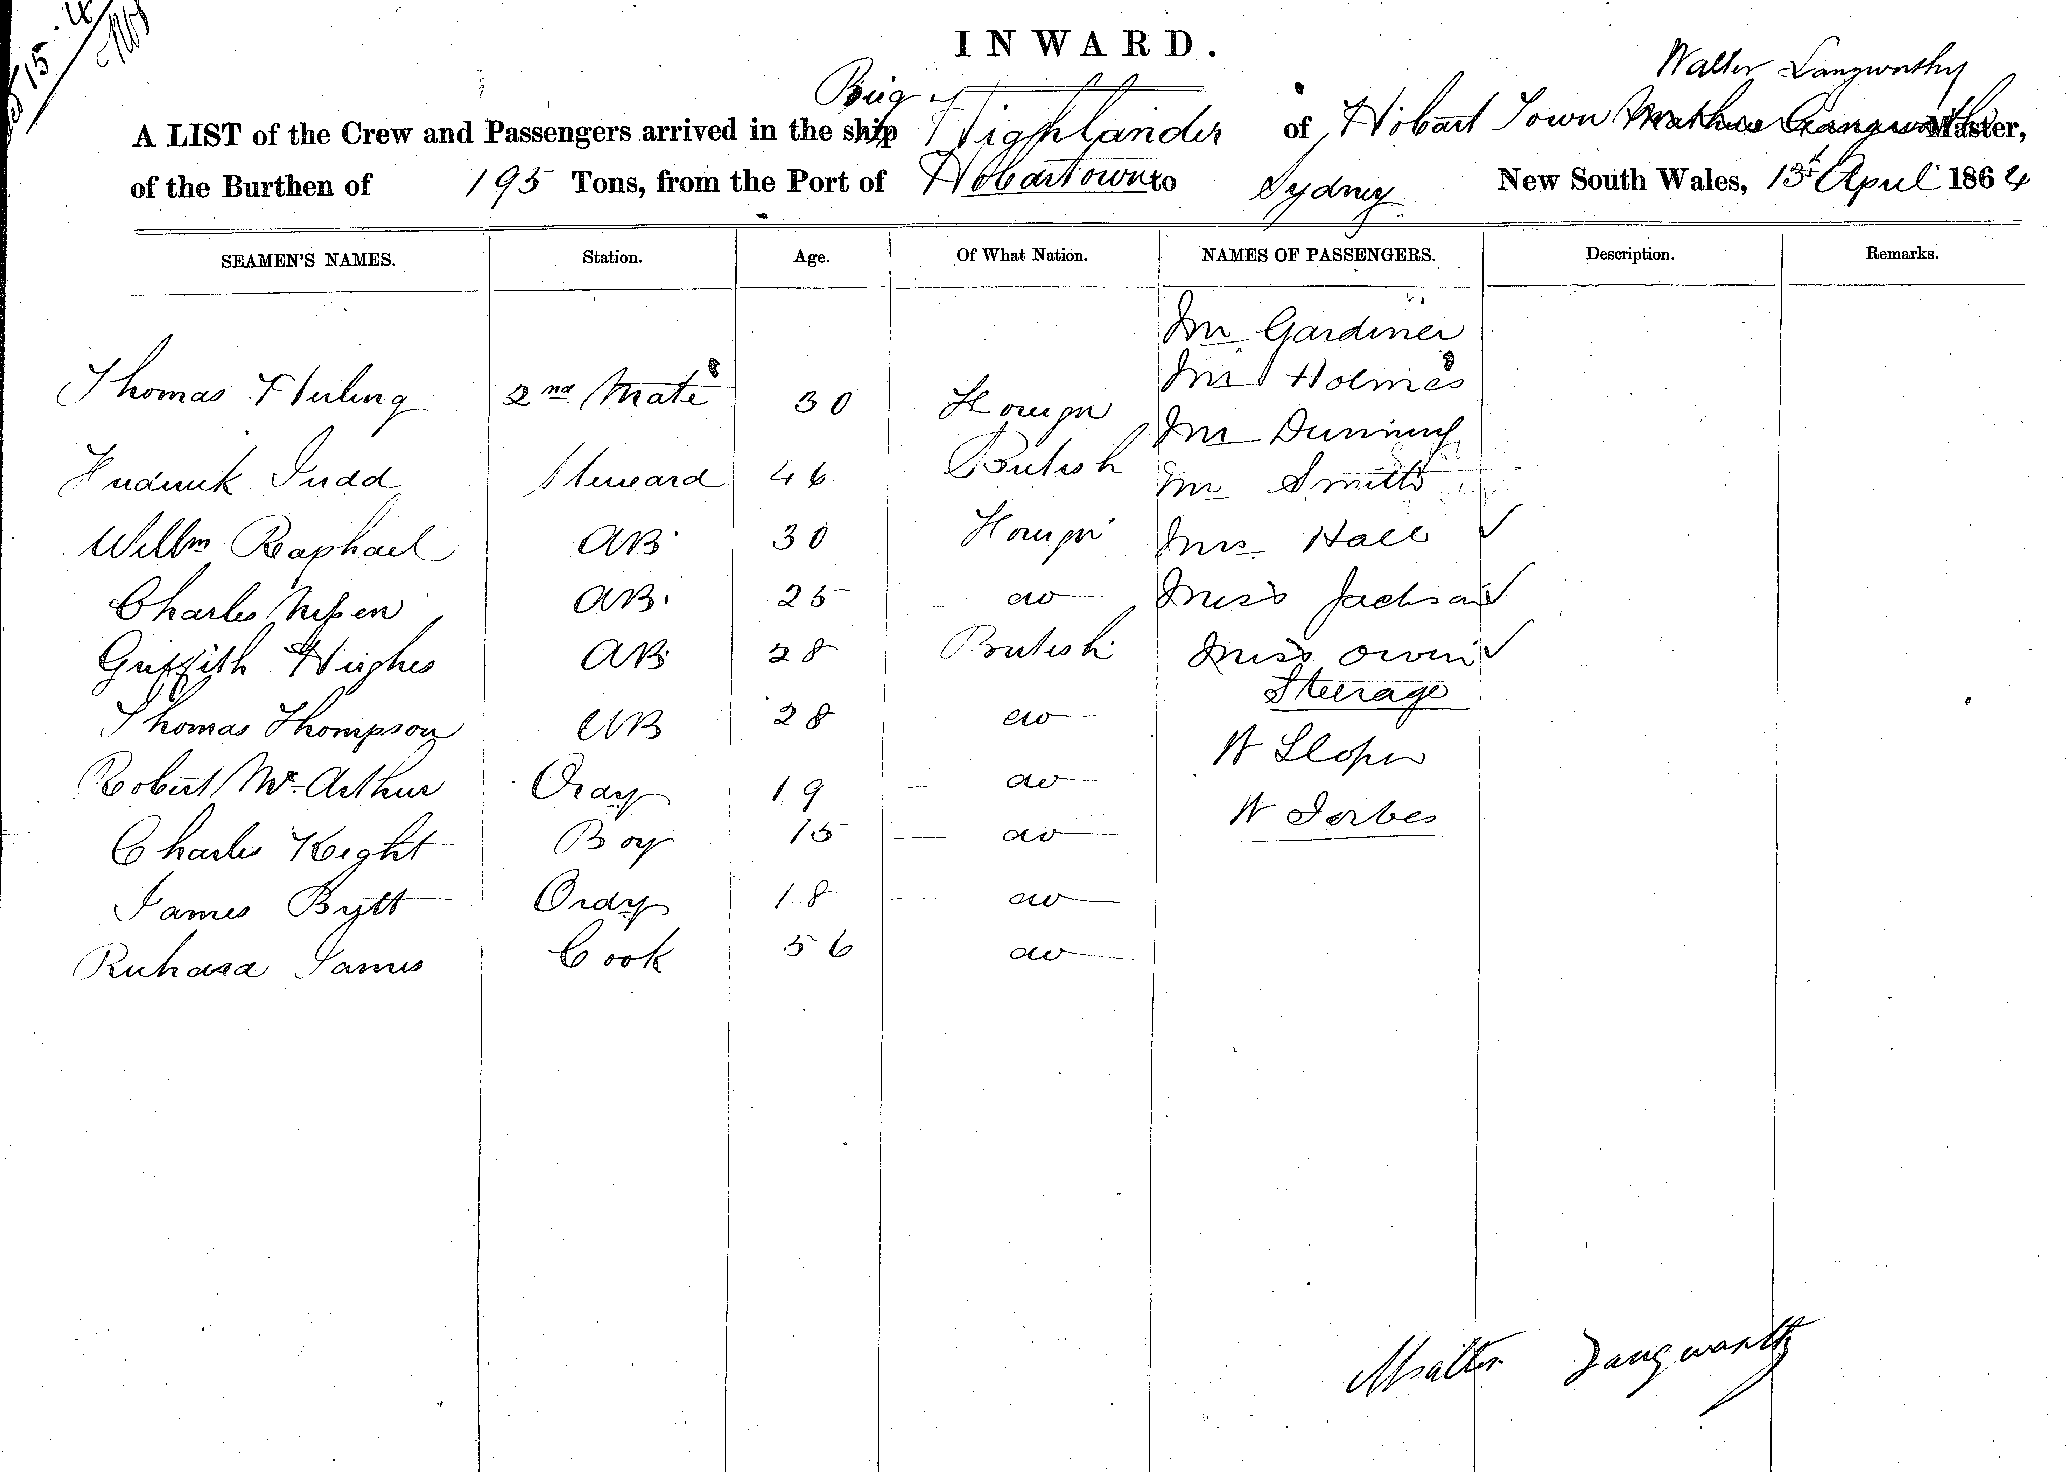 15
INWARD.
Walter Langworthy
Brig
A LIST of the Crew and Passengers arrived in the ship Highlander of Hobart Town Master,
of the Burthen of 195 Tons, from the Port of Hobartown to Sydney New South Wales, 13th April 1864
SEAMEN'S NAMES. Station. Age. Of What Nation. NAMES OF PASSENGERS. Description. Remarks.
Mr Gardiner
Mr Holmes
Thomas 2nd Mate 30 Foreign
Mr
Fredrick Judd Steward 46 British Mr Smith
Willm Raphael AB 30 Foreign Mrs Hall ✓
Charles AB. 25 do Miss Jackson ✓
Griffith Hughes AB 28 British Miss Owen ✓
Steerage
Thomas Thompson AB 28 do
W Sloper
Robert McArthur Ordy 19 do
W Forbes
Charles Keght Boy 15 do
James Bytt Ordy 18 do
Richard James Cook 56 do
Walter Langworthy